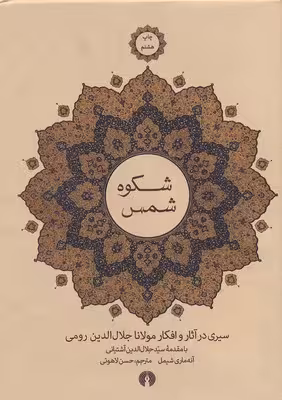 چاپ
هشتم
شکوه
شمس
سیری در آثار و افکار مولانا جلال‌الدین رومی
با مقدمهٔ سیّد جلال‌الدین آشتیانی
آنه‌ماری شیمل مترجم: حسن لاهوتی